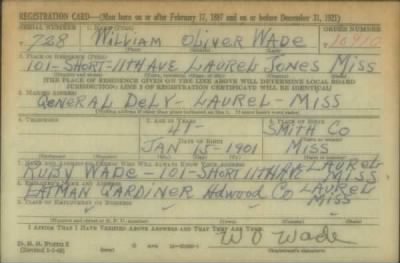 REGISTRATION CARD—(Men born on or after February 17, 1897 and on or before December 31, 1921)
SERIAL NUMBER 1. NAME (Print) ORDER NUMBER
728 WILLIAM OLIVER WADE
2. PLACE OF RESIDENCE (Print)
101-SHORT-11TH AVE LAUREL JONES MISS
[THE PLACE OF RESIDENCE GIVEN ON THE LINE ABOVE WILL DETERMINE LOCAL BOARD
JURISDICTION; LINE 2 OF REGISTRATION CERTIFICATE WILL BE IDENTICAL]
3. MAILING ADDRESS
GENERAL DELY-LAUREL-MISS
4. TELEPHONE 5. AGE IN YEARS 6. PLACE OF BIRTH
41- SMITH CO
DATE OF BIRTH
JAN 15-1901 MISS
7. NAME AND ADDRESS OF PERSON WHO WILL ALWAYS KNOW YOUR ADDRESS LAUREL
RUBY WADE-101-SHORT 11TH AVE MISS
8. EMPLOYER'S NAME AND ADDRESS
EATMAN GARDINER HDWOOD CO LAUREL
9. PLACE OF EMPLOYMENT OR BUSINESS MISS
I AFFIRM THAT I HAVE VERIFIED ABOVE ANSWERS AND THAT THEY ARE TRUE.
W O Wade